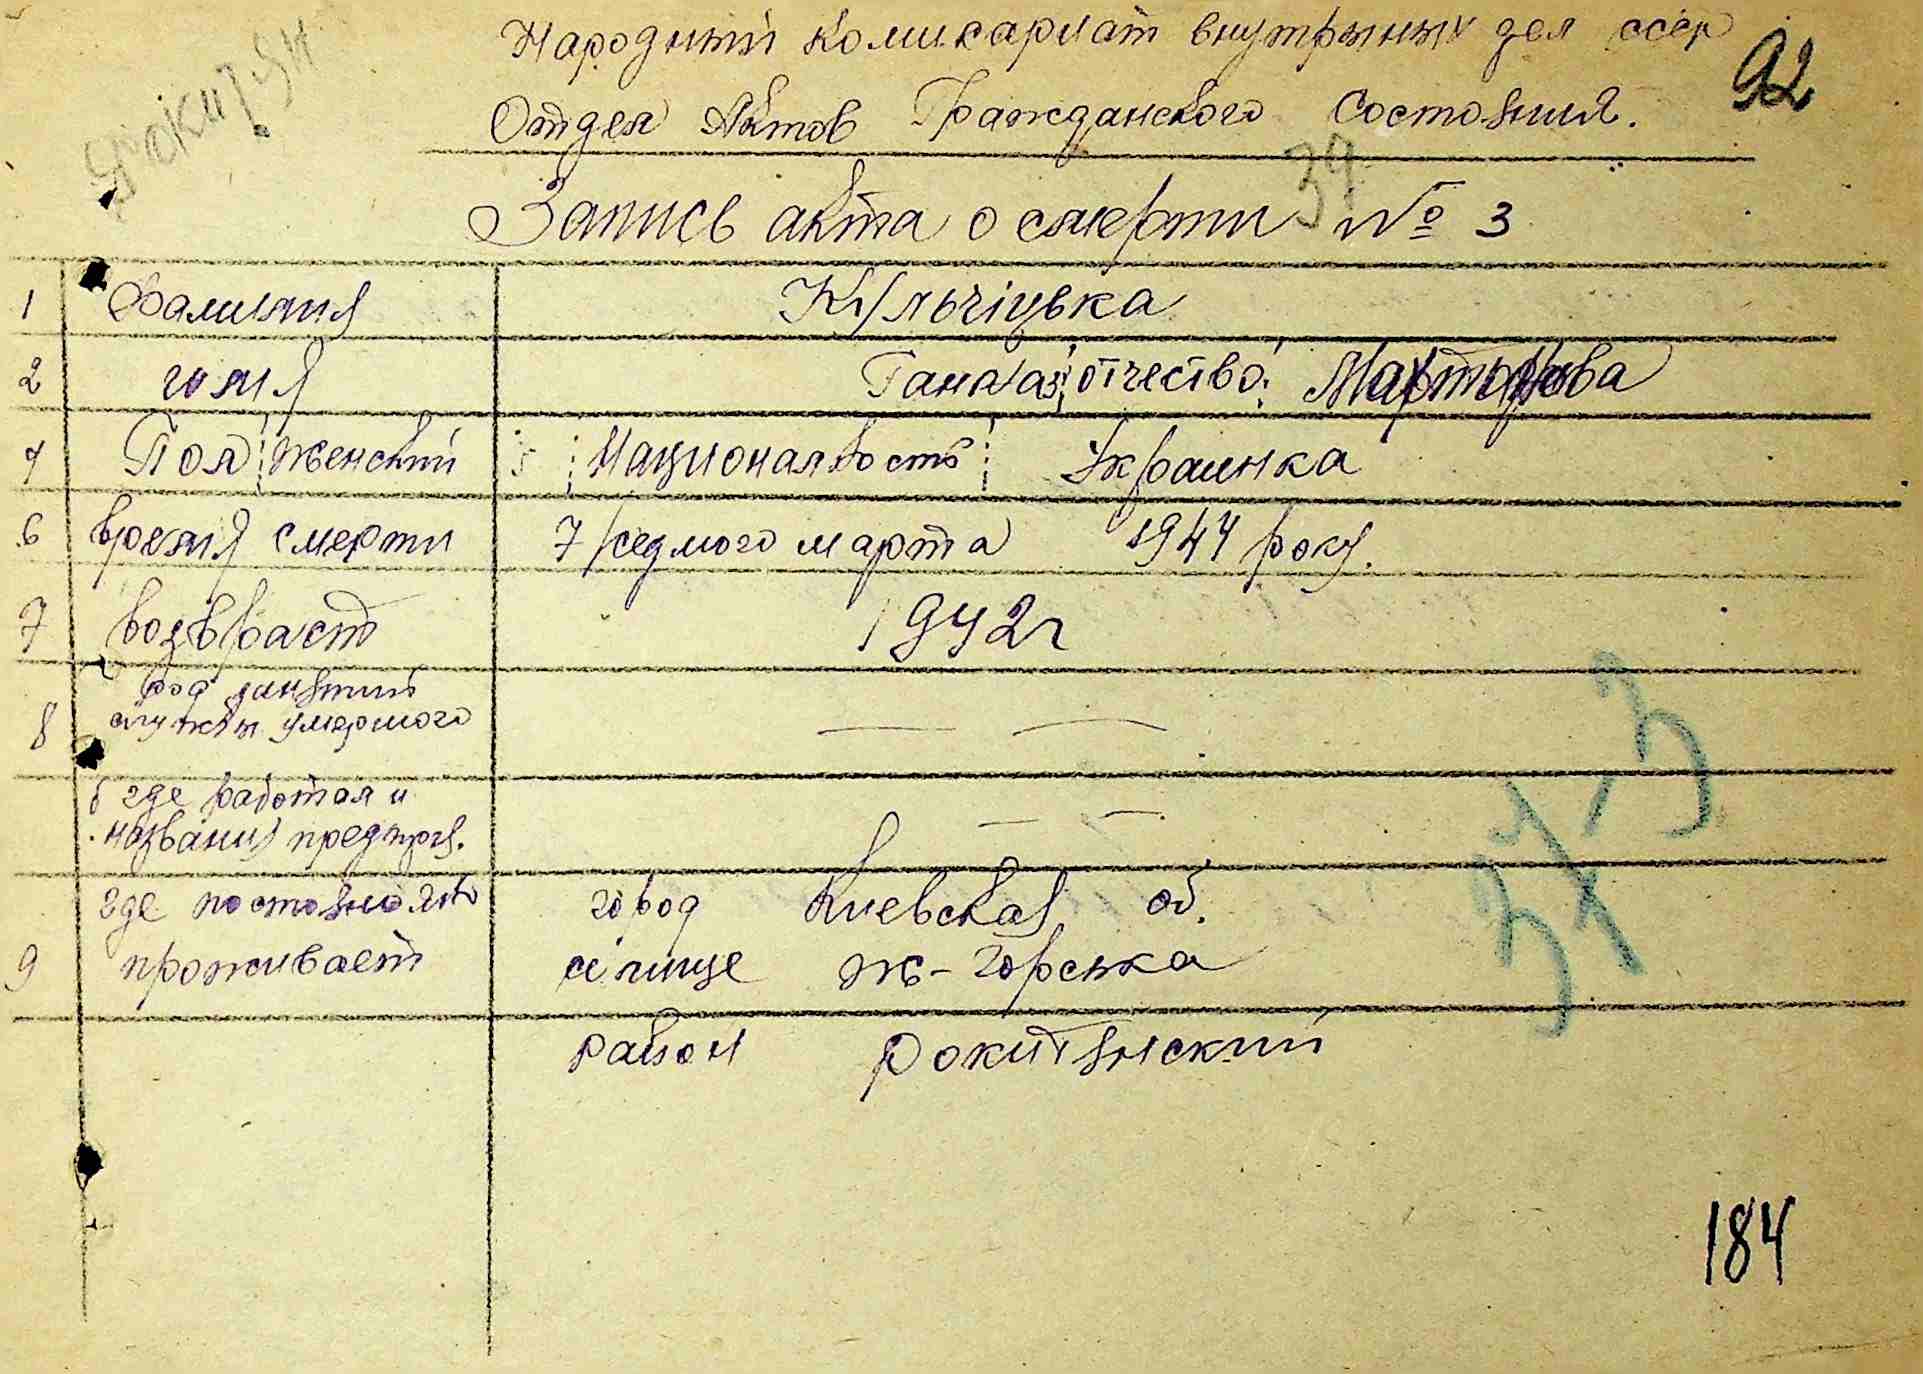 Народний комикариат внутрыных дел ссср
92
Отдел Актов Гражданского Состояния.
39
Запись акта о смерти № 3
1 Фамилия Кульчіцька
2 имя Ганна 3 отчество: Мартынова
4 Пол женский 5 Национальность Украинка
6 время смерти 7/седмого марта 1944 року.
7 возвраст 1942г
8 род занятий
службы умершого
б где работал и
название предприя.
9 где постоянно
проживает
город Киевская об.
селище Ж-Горська
район Рокитянский
184